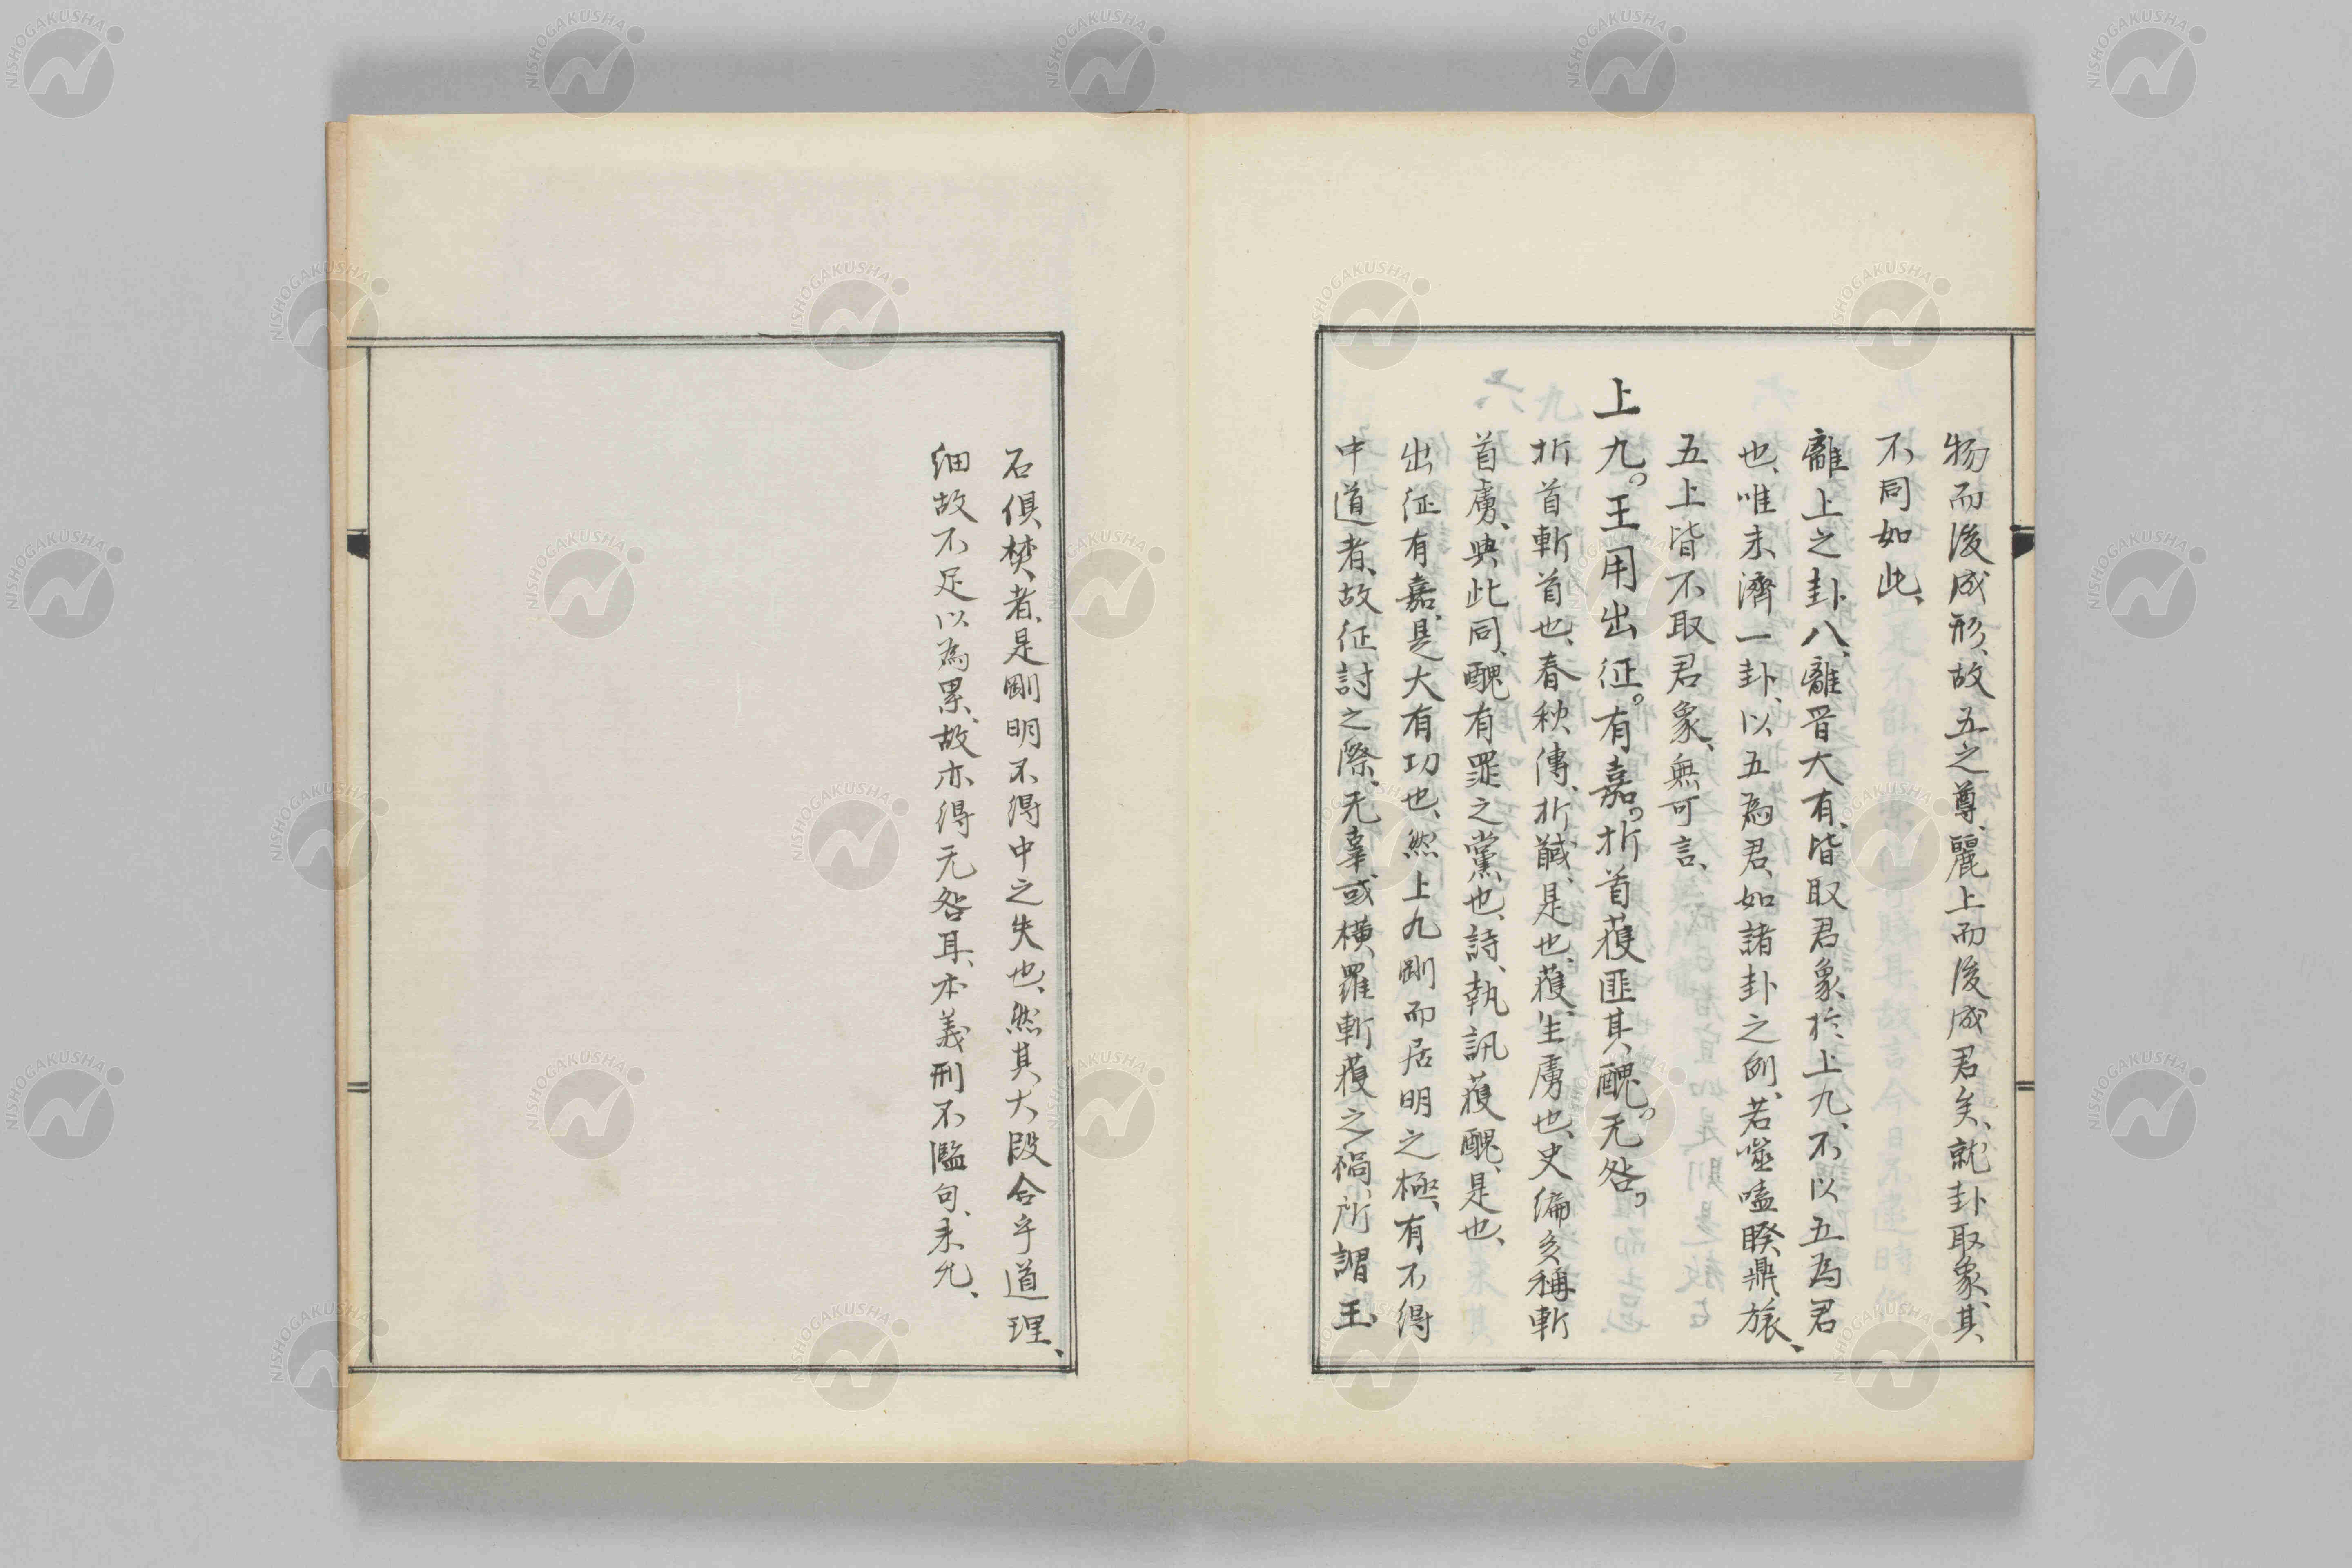 物而後成形、故五之尊、麗上而後成君矣、就卦取象、其
不同如此、
離上之卦八、離晉大有、皆取君象、於上九、不以五為君
也、唯未濟一卦、以五為君、如諸卦之例、若噬嗑睽鼎旅、
五上皆不取君象、無可言、
上九。王用出征。有嘉。折首獲匪其醜。无咎。
折首斬首也、春秋傳、折馘、是也、獲、生虜也、史編多稱斬
首虜、典此同、醜有罪之黨也、詩、執訊獲醜、是也、
出征有嘉、是大有功也、然上九剛而居明之極、有不得
中道者、故征討之際、无辜或橫罹斬獲之禍、所謂玉
石俱焚者、是剛明不得中之失也、然其大段合乎道理、
細故不足以為累、故亦得无咎耳、本義刑不濫句、未允、
NISHOGAKUSHA